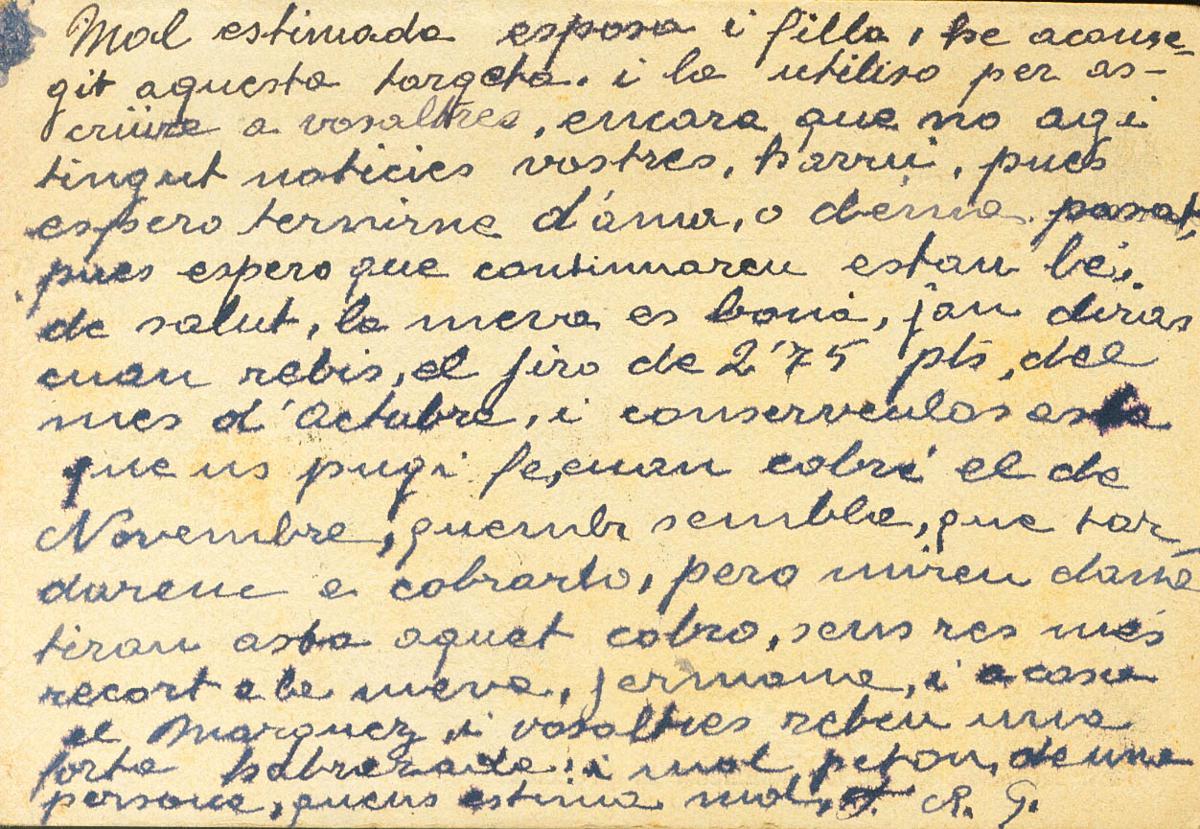 Mol estimada esposa i filla, he aconse-
git aquesta targeta. i la utiliso per as-
criüre a vosaltres, encara que no agi
tingut noticies vostres, harrui, pues
espero ternirne d'ama, o déma pasat,
pues espero que continuareu estan bé,
de salut, la meva es bona, jau diras
cuan rebis, el jiro de 2'75 pts, del
mes d'Actubre, i conserveulos asta
que us pugi fe, cuan cobri el de
Novembre, quembr sembla, que tar
darenc a cobrarlo, pero mireu dana
tiran asta aquet cobro, sens res més
recort a la meva, jermana, i a casa
el Marquez, i vosaltres rebeu una
forta habrazada: i mol petons, de una
persona, queus estima mol, J. R. G.